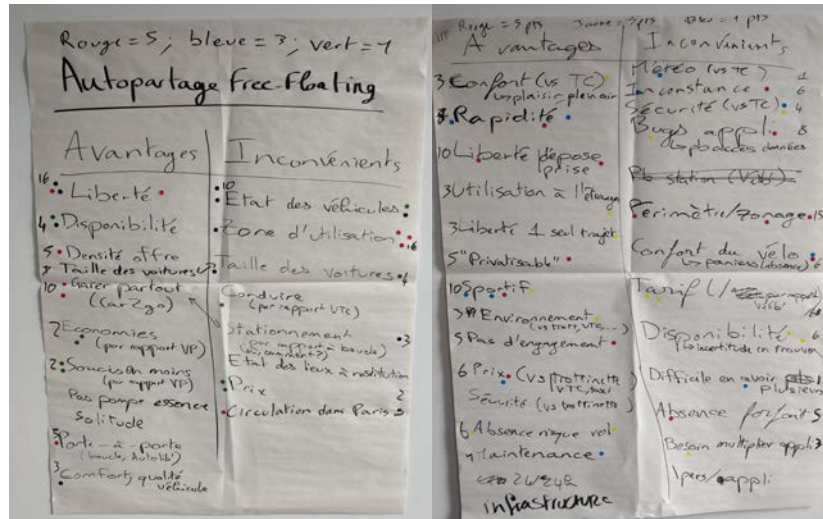 Rouge = 5 ; bleue = 3 ; vert = 1
Autopartage Free-Floating
Avantages
16 Liberté
4 Disponibilité
5 Densité offre
Taille des voitures
10 Garer partout
(Car2go)
2 Economies
(par rapport VP)
2 Soucis en moins
(par rapport VP)
Pas pompe essence
Solitude
5 Porte-à-porte
(boucle, Autolib')
3 Comfort, qualité
véhicule
Inconvénients
10
Etat des véhicules
Zone d'utilisation
16
Taille des voitures 4
Conduire
(par rapport VTC)
Stationnement 3
(par rapport à boucle)
Etat des lieux à restitution
Prix
2
Circulation dans Paris 5
Rouge = 5 pts Jaune = 3 pts = 1 pts
Avantages
3 Confort (vs TC)
↳ plaisir plein air
Rapidité
10 Liberté dépose
prise
3 Utilisation à l'étranger
3 Liberté 1 seul trajet
5 "Privatisable"
10 Sportif
Environnement
5 Pas d'engagement
6 Prix (vs trottinette
VTC, taxi)
Sécurité (vs trottinette)
6 Absence risque vol
Maintenance
24/24h
infrastructure
Inconvénients
Météo (vs TC) 1
Inconstance 6
Sécurité (vs TC) 4
Bugs appli 8
↳ pb accès données
Pb station (Vélib')
Périmètre/zonage 15
Confort du vélo
Tarif (/ par rapport
Vélib'
Disponibilité 6
↳ incertitude en trouver
Difficile en avoir
plusieurs
Absence forfait 5
Besoin multiplier appli 3
1 pers/appli